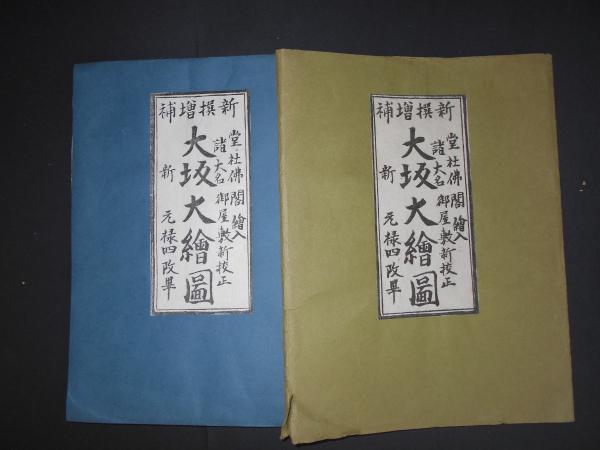 新撰増補
堂社佛閣繪入
諸大名御屋敷新挍正
大坂大繪圖
新 元禄四改畢
新撰増補
堂社佛閣繪入
諸大名御屋敷新挍正
大坂大繪圖
新 元禄四改畢